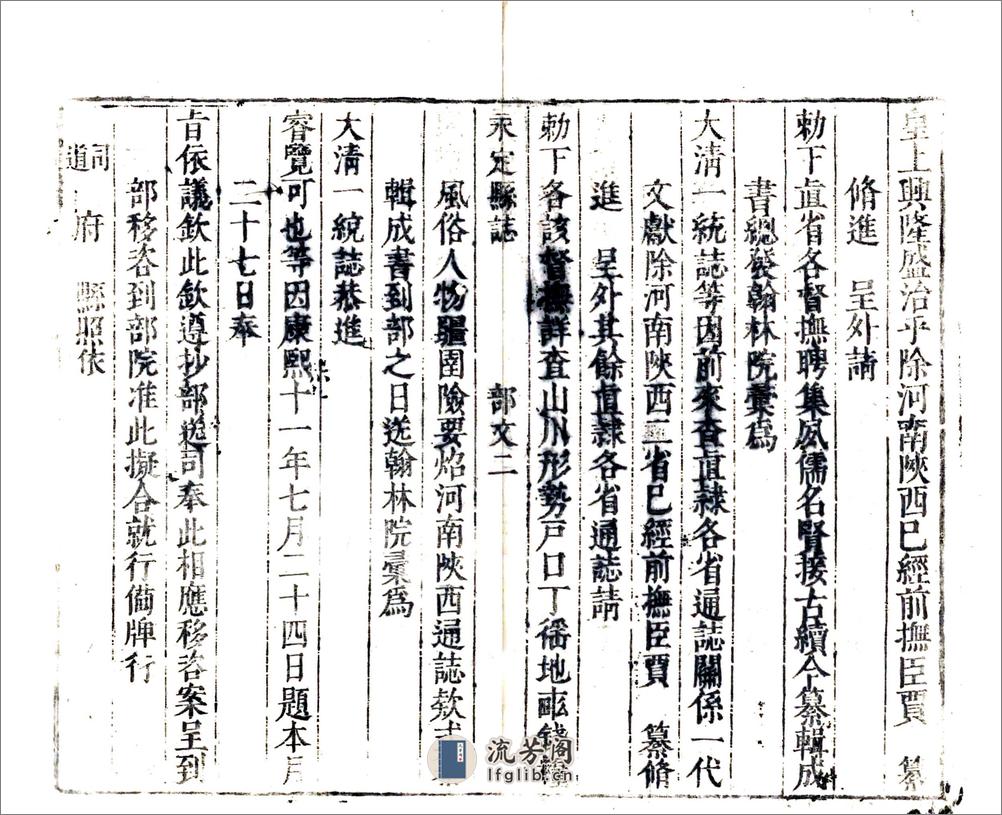 皇上興隆盛治乎除河南陝西已經前撫臣賈　纂
脩進　呈外請
勅下直省各督撫聘集夙儒名賢接古續今纂輯成
書總發翰林院彙爲
大清一統誌等因前來查直隸各省通誌關係一代
文獻除河南陝西二省已經前撫臣賈　纂脩
進　呈外其餘直隸各省通誌請
勅下各該督撫詳查山川形勢戶口丁徭地畝錢糧
永定縣誌　部文　二
風俗人物疆圉險要炤河南陝西通誌欵式
輯成書到部之日送翰林院彙爲
大清一統誌恭進
睿覽可也等因康熙十一年七月二十四日題本月
二十七日奉
旨依議欽此欽遵抄部送司奉此相應移咨案呈到
部移咨到部院准此擬合就行備牌行
司道　府　縣照依
流芳閣
lfglib.cn